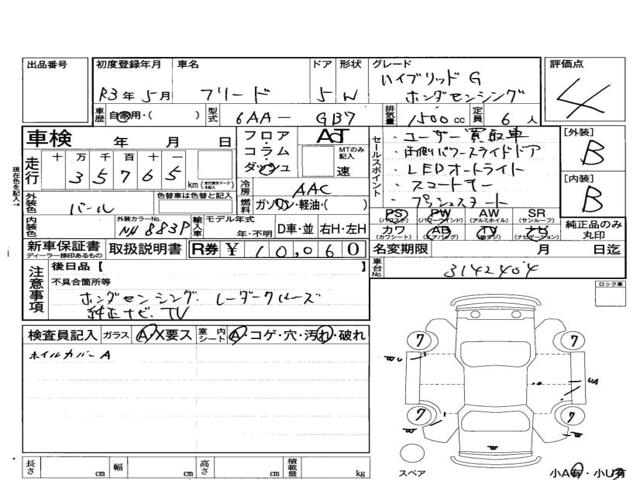 出品番号 初度登録年月 車名 ドア 形状 グレード 評価点
R3年5月 フリード 5 W ハイブリッドG ホンダセンシング 4
車歴 自家用・( ) 型式 6AA- GB7 排気量 1500cc 定員 6人
車検 年 月 日 フロア コラム ダッシュ AT MTのみ記入 速
セールスポイント
・ユーザー買取車
・両側パワースライドドア
・LEDオートライト
・スマートキー
・プッシュスタート
[外装] B
[内装] B
走行 十万千百十一 35765 km
現在色を記入→
冷房 AAC
燃料 ガソリン・軽油・( )
外装色 パール 色替車は色替と記入
内装色 外装カラーNo. NH883P 輸入車 モデル年式 年・不明 D車・並 右H・左H
PS (パワステ) PW (パワーウインド) AW (アルミホイル) SR (サンルーフ)
カワ (カワシート) AB (エアバッグ) TV (テレビ) ナビ (ナビゲーション) 純正品のみ丸印
新車保証書 ディーラー捺印あるもの 取扱説明書 R券 ¥10,060 名変期限 月 日迄
注意事項 後日品[ ] 車台No. 3142404
不具合箇所等
ホンダセンシング レーダークルーズ
純正ナビ、TV
ロック車
検査員記入 ガラス A/X要ス 室内 シート A・コゲ・穴・汚れ・破れ
ホイルカバーA
7 7
W U UA
7 7
W W
W
スペア 小A有・小U有
長さ cm 幅 cm 高さ cm 積載量 kg